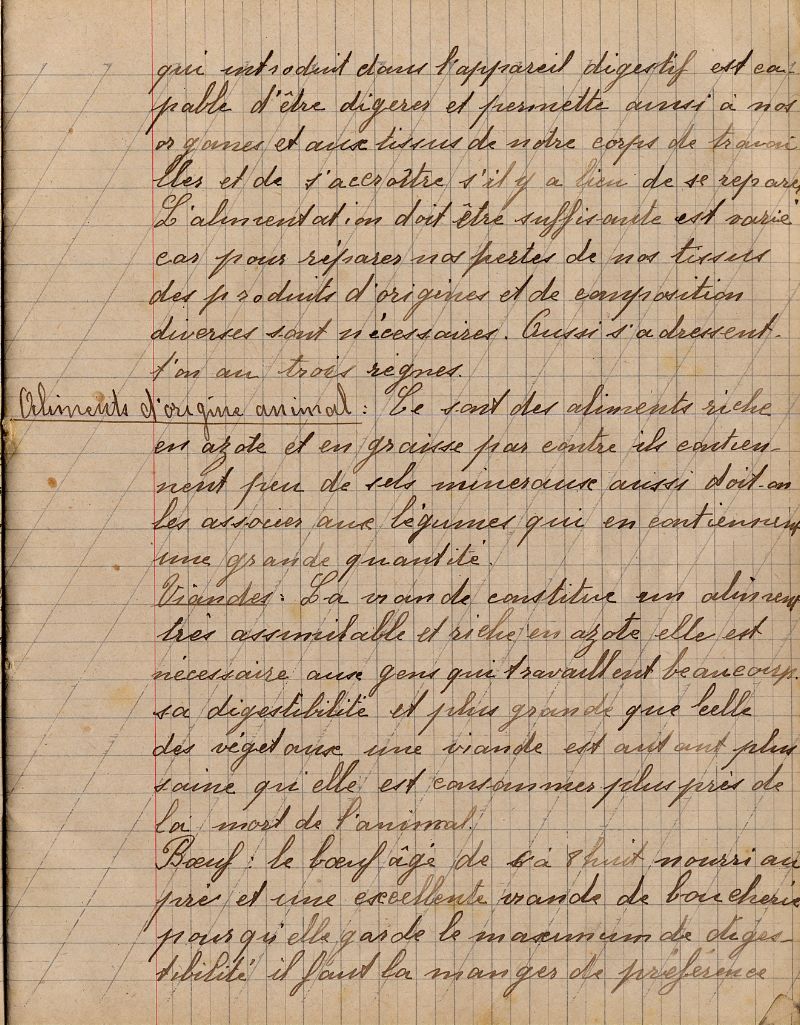 qui introduit dans l'appareil digestif est ca-
pable d'être digerer et permette ainsi à nos
organes et aux tissus de notre corps de travai
ller et de s'accroître s'il y a lieu de se reparer
L'alimentation doit être suffisante est varié
car pour réparer nos pertes de nos tissus
des produits d'origines et de composition
diverses sont nécessaires. Aussi s'adressent-
l'on au trois règnes.
Aliments d'origine animal : Ce sont des aliments riche
en azote et en graisse par contre ils contien-
nent peu de sels mineraux aussi doit-on
les associer aux légumes qui en contiennent
une grande quantité.
Viandes : La viande constitue un aliment
très assimilable et riche en azote elle est
nécessaire aux gens qui travaillent beaucoup.
sa digestibilité et plus grande que celle
des végetaux une viande est autant plus
saine qu'elle est consommer plus près de
la mort de l'animal.
Bœuf : le bœuf âgé de 6 à 8 huit nourri au
pré et une excellente viande de boucherie
pour qu'elle garde le maximum de diges-
tibilité il faut la manger de préférence